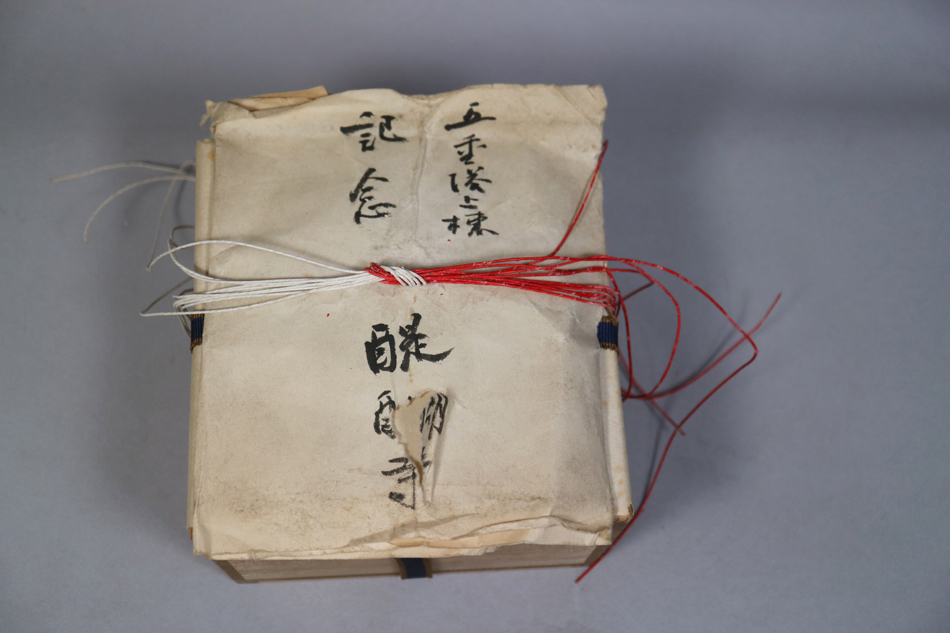 五重塔上棟
記念
醍醐寺